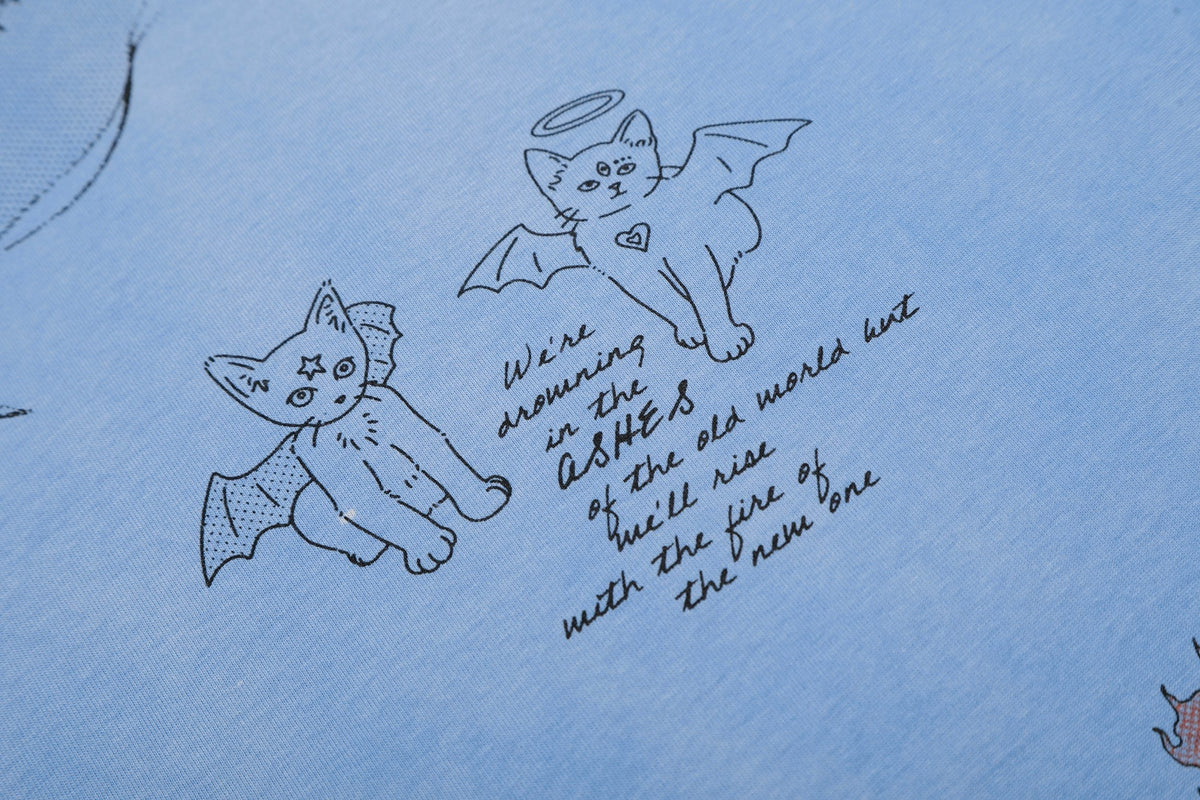 We're
drowning
in the
ASHES
of the old world but
we'll rise
with the fire of
the new one